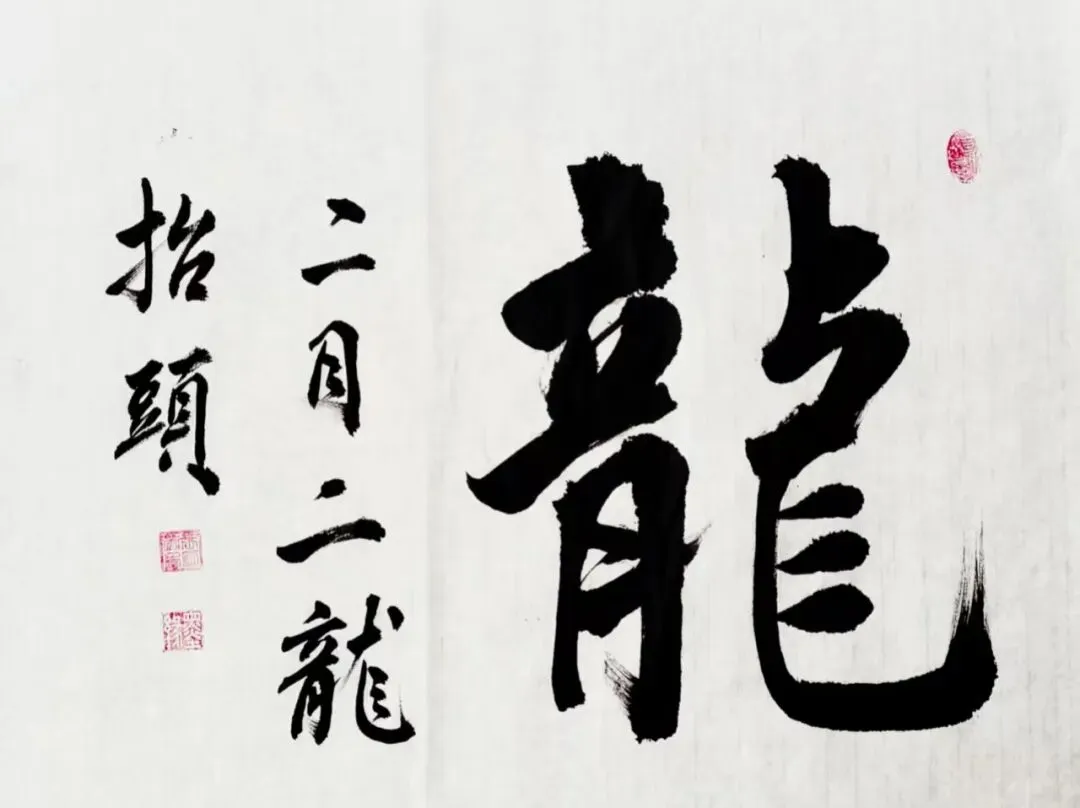 龍
二月二龍
抬頭